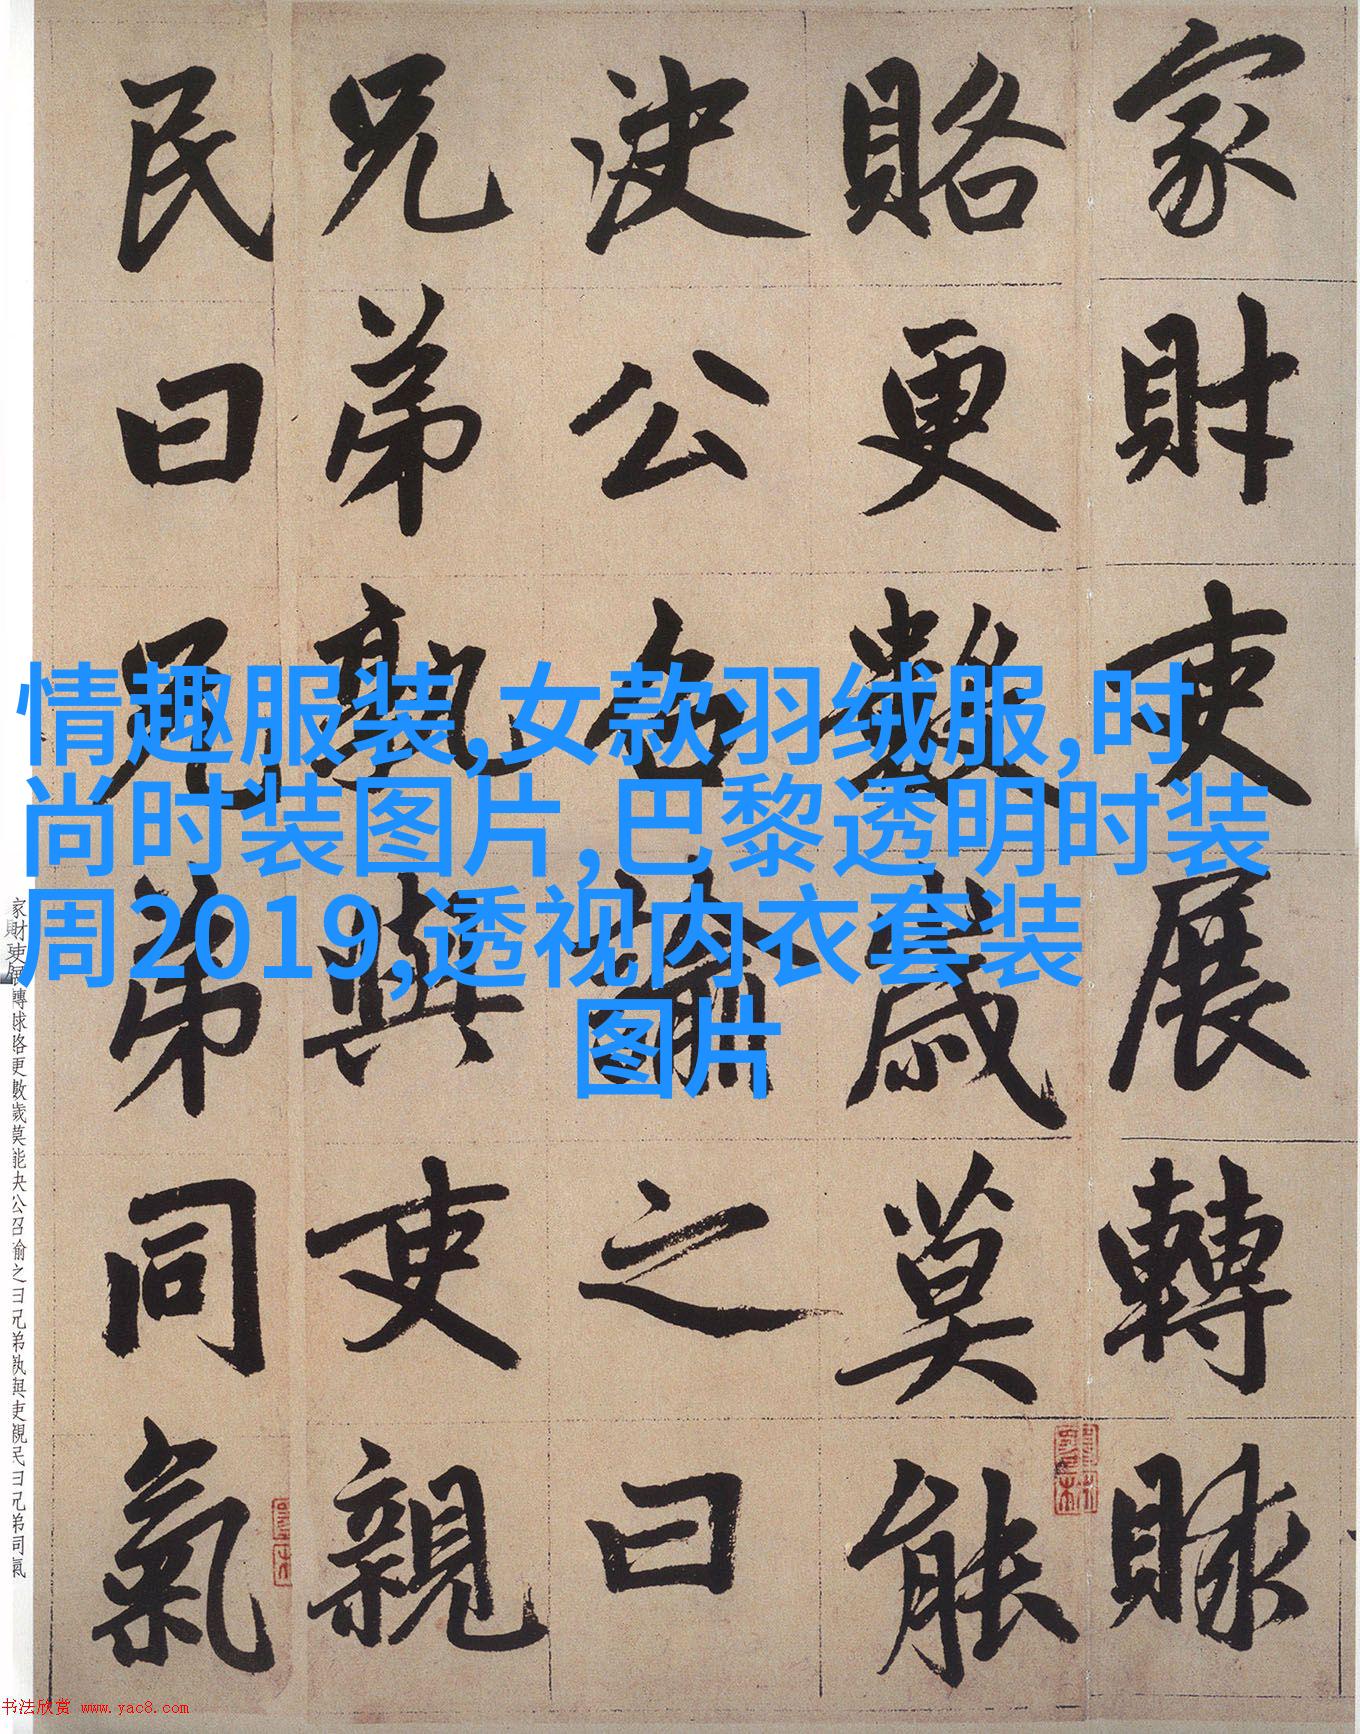 家財吏展轉賕
賂更數歲莫能
決公召諭之曰
兄弟孰與吏親
民曰兄弟同氣
情趣服装,女款羽绒服,时
尚时装图片,巴黎透明时装
周2019,透视内衣套装
图片
家財吏展轉賕賂更數歲莫能决公召諭之曰兄弟孰與吏親民曰兄弟同氣
书法欣赏 www.yac8.com